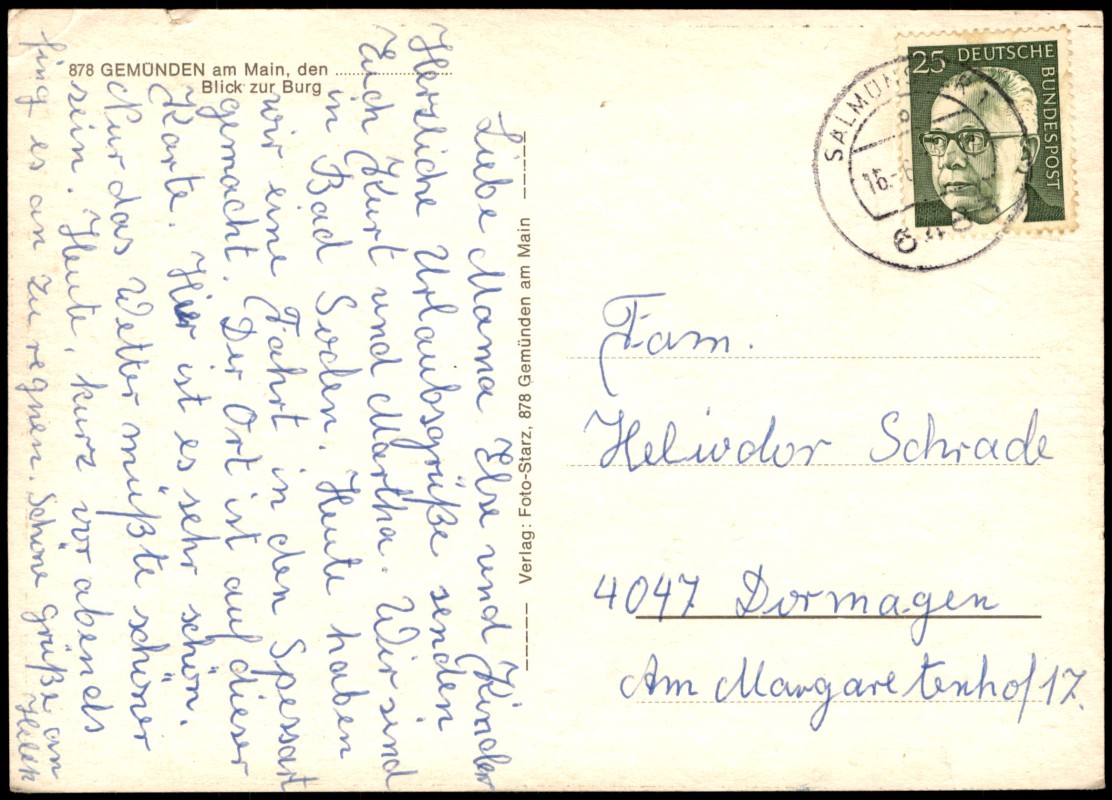 878 GEMÜNDEN am Main, den
Blick zur Burg
Liebe Mama Else und Kinder
Herzliche Urlaubsgrüße senden
Euch Kurt und Martha. Wir sind
in Bad Soden. Heute haben
wir eine Fahrt in den Spessart
gemacht. Der Ort ist auf dieser
Karte. Hier ist es sehr schön.
Nur das Wetter müßte schöner
sein. Heute, kurz vor abends
fing es an zu regnen. Schöne grüße an
Verlag: Foto-Starz, 878 Gemünden am Main
25 DEUTSCHE
BUNDESPOST
SALMÜNSTER 1
16.-6
Fam.
Heliodor Schrade
4047 Dormagen
Am Margaretenhof 17.